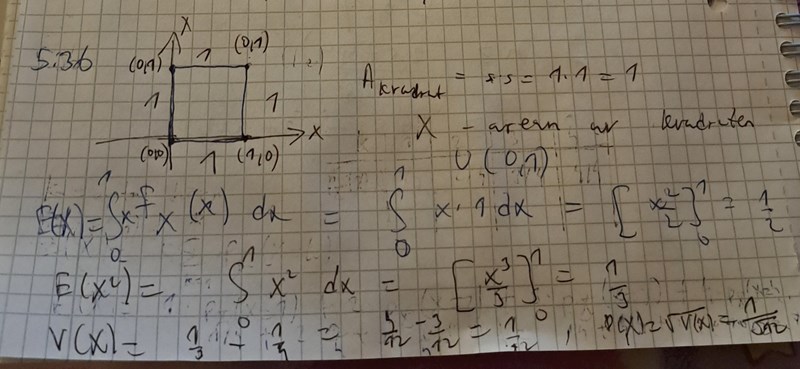 5.36
X
(0,1) 1 (0,1)
1 1
X
(0,0) 1 (1,0)
A kvadrat = s·s = 1·1 = 1
X - arean av kvadraten
U(0,1)
E(X) = ∫₀¹ x f_X(x) dx = ∫₀¹ x·1 dx = [x²/2]₀¹ = 1/2
E(X²) = ∫₀¹ x² dx = [x³/3]₀¹ = 1/3
V(X) = 1/3 - 1/4 = /12 - 3/12 = 1/12, D(X) = √V(X) = 1/√12